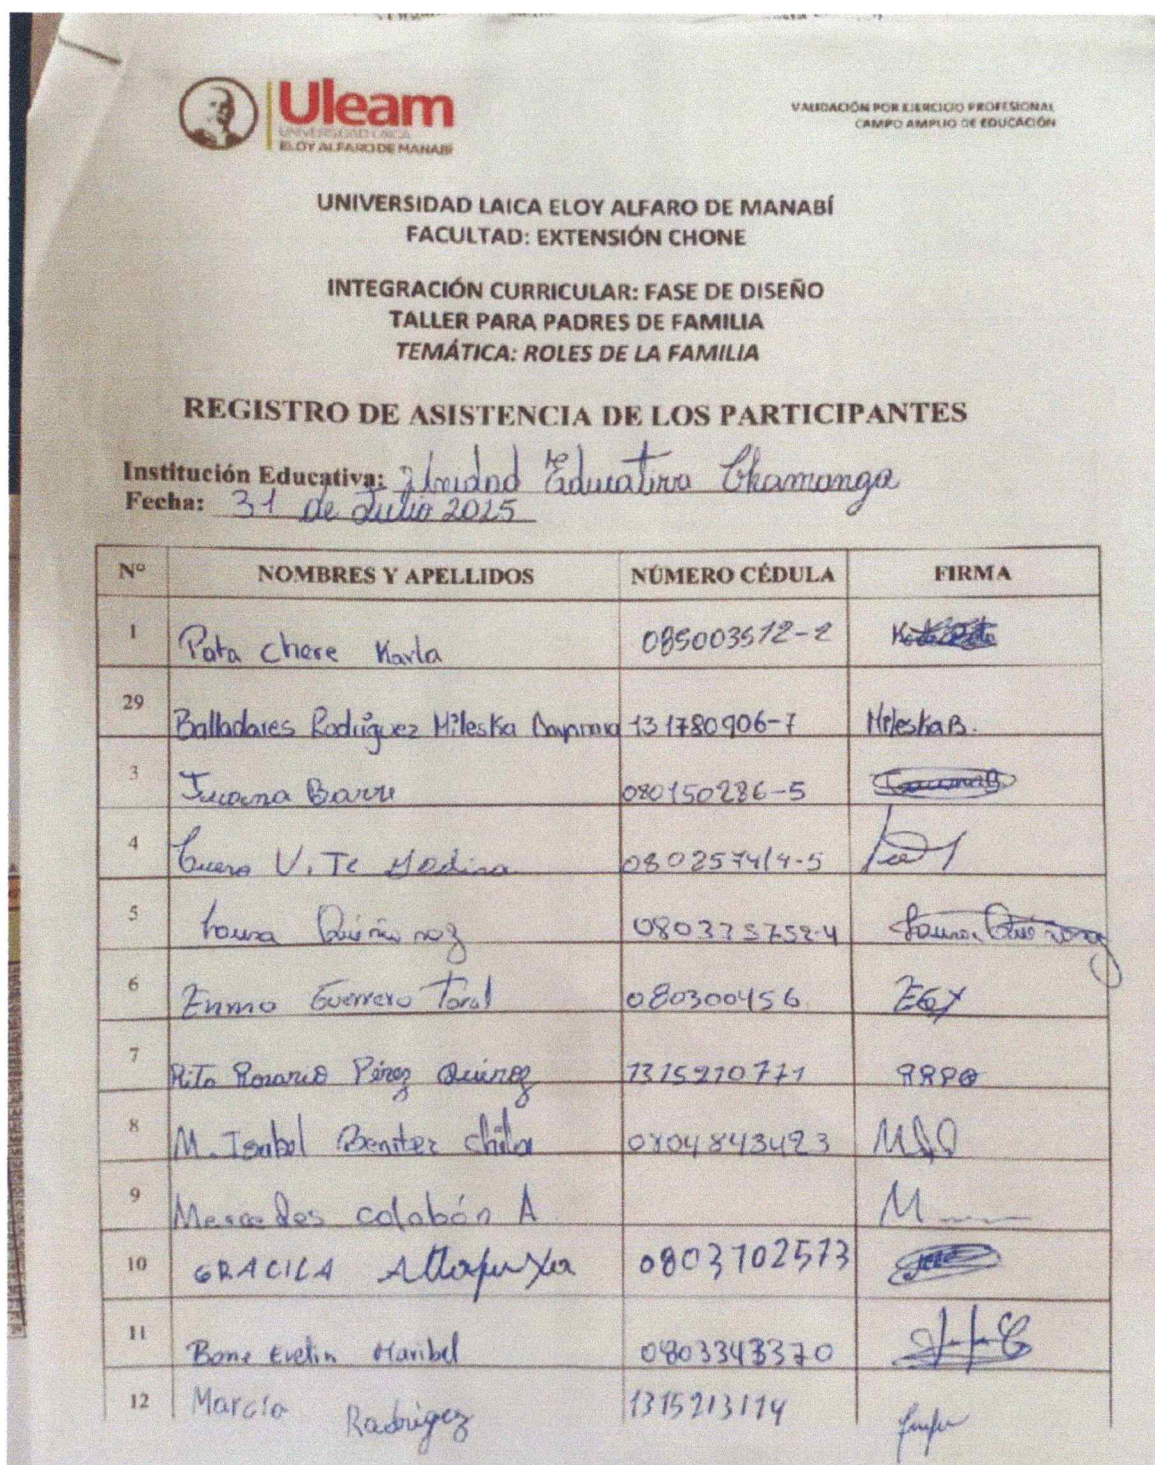 Uleam
UNIVERSIDAD LAICA
ELOY ALFARO DE MANABÍ
VALIDACIÓN POR EJERCICIO PROFESIONAL
CAMPO AMPLIO DE EDUCACIÓN
UNIVERSIDAD LAICA ELOY ALFARO DE MANABÍ
FACULTAD: EXTENSIÓN CHONE
INTEGRACIÓN CURRICULAR: FASE DE DISEÑO
TALLER PARA PADRES DE FAMILIA
TEMÁTICA: ROLES DE LA FAMILIA
REGISTRO DE ASISTENCIA DE LOS PARTICIPANTES
Institución Educativa: Unidad Educativa Chamanga
Fecha: 31 de Julio 2025
Nº NOMBRES Y APELLIDOS NÚMERO CÉDULA FIRMA
1 Pata Chere Karla 085003512-2
29 Balladares Rodriguez Mileska 131780906-7 Mileska B.
3 Barre 080150286-5
4 080257414-5
5 Quiñonoz
6 Guerrero Toral 080300456 EGT
7 Rosario Pérez 1315210771 RRPQ
8 M. Isabel Benitez Chila 0804843423
9 Mercedes A. M
10 GRACILA 0803702573
11 Bone Evelin Maribel 0803343370
12 Marcia Radrigez 1315213114